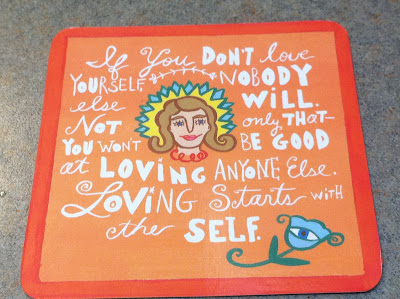 If You DON'T love
YOURSELF NOBODY
else WILL.
Not only THAT
YOU WON'T BE GOOD
at LOVING ANYONE Else.
LOVING Starts WITH
the SELF.